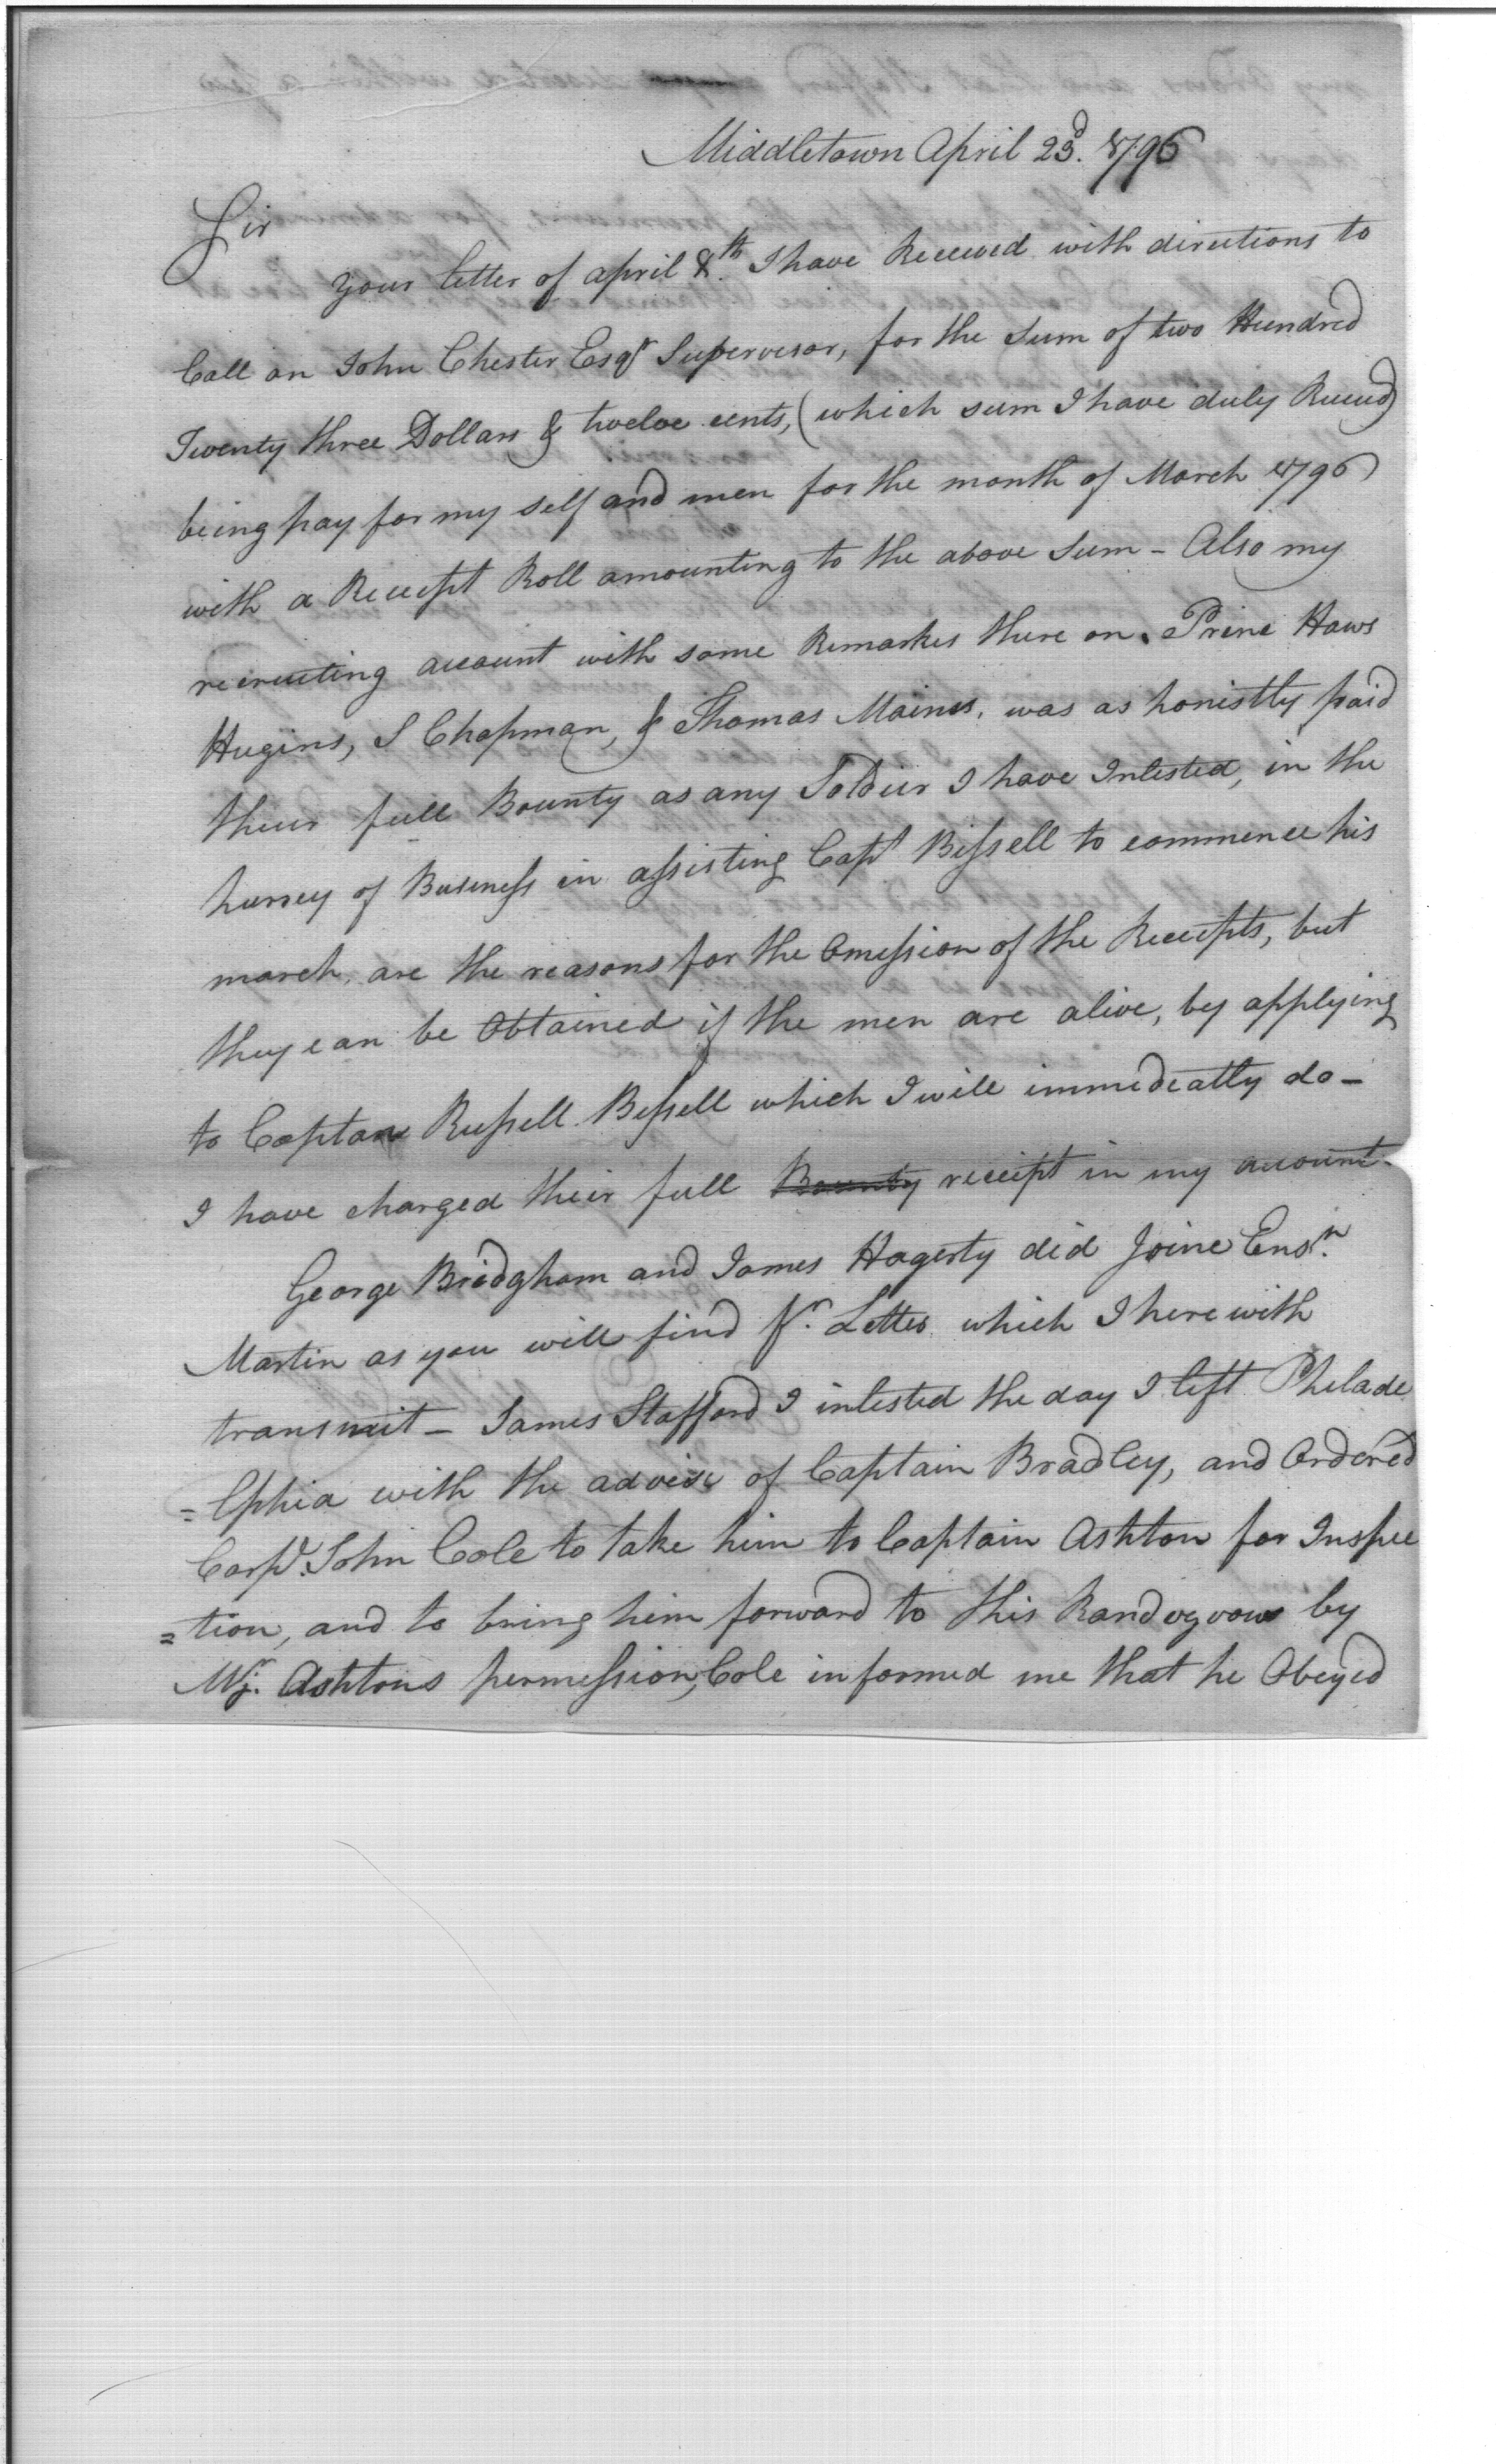 Middletown April 23d. 1796
Sir
your letter of april 8th. I have Received with directions to
Call on John Chester Esqr Supervisor, for the Sum of two Hundred
Twenty three Dollars & twelve cents, (which sum I have duly Receivd)
being pay for my self and men for the month of March 1796
with a Receipt Roll amounting to the above Sum - Also my
recruiting account with some Remarkes there on. Prine Haws
Hugins, S Chapman, & Thomas Maines, was as honistly paid
their full Bounty as any Soldier I have Inlested, in the
hurrey of Business in assisting Capt Bissell to commence his
march, are the reasons for the Omission of the Receipts, but
they can be Obtained if the men are alive, by applying
to Captan Russell Bissell which I will immediatly do -
I have charged their full Bounty receipt in my account.
George Bridgham and James Hagerty did Joine Ensn.
Martin as you will find pr. Letter which I here with
transmit - James Stafford I inlested the day I left Philade
=lphia with the advise of Captain Bradley, and Ordered
Corpl. John Cole to take him to Captain Ashton for Inspec
=tion, and to bring him forward to this Randevzvous by
Mj. Ashtons permission, Cole informed me that he Obeyed